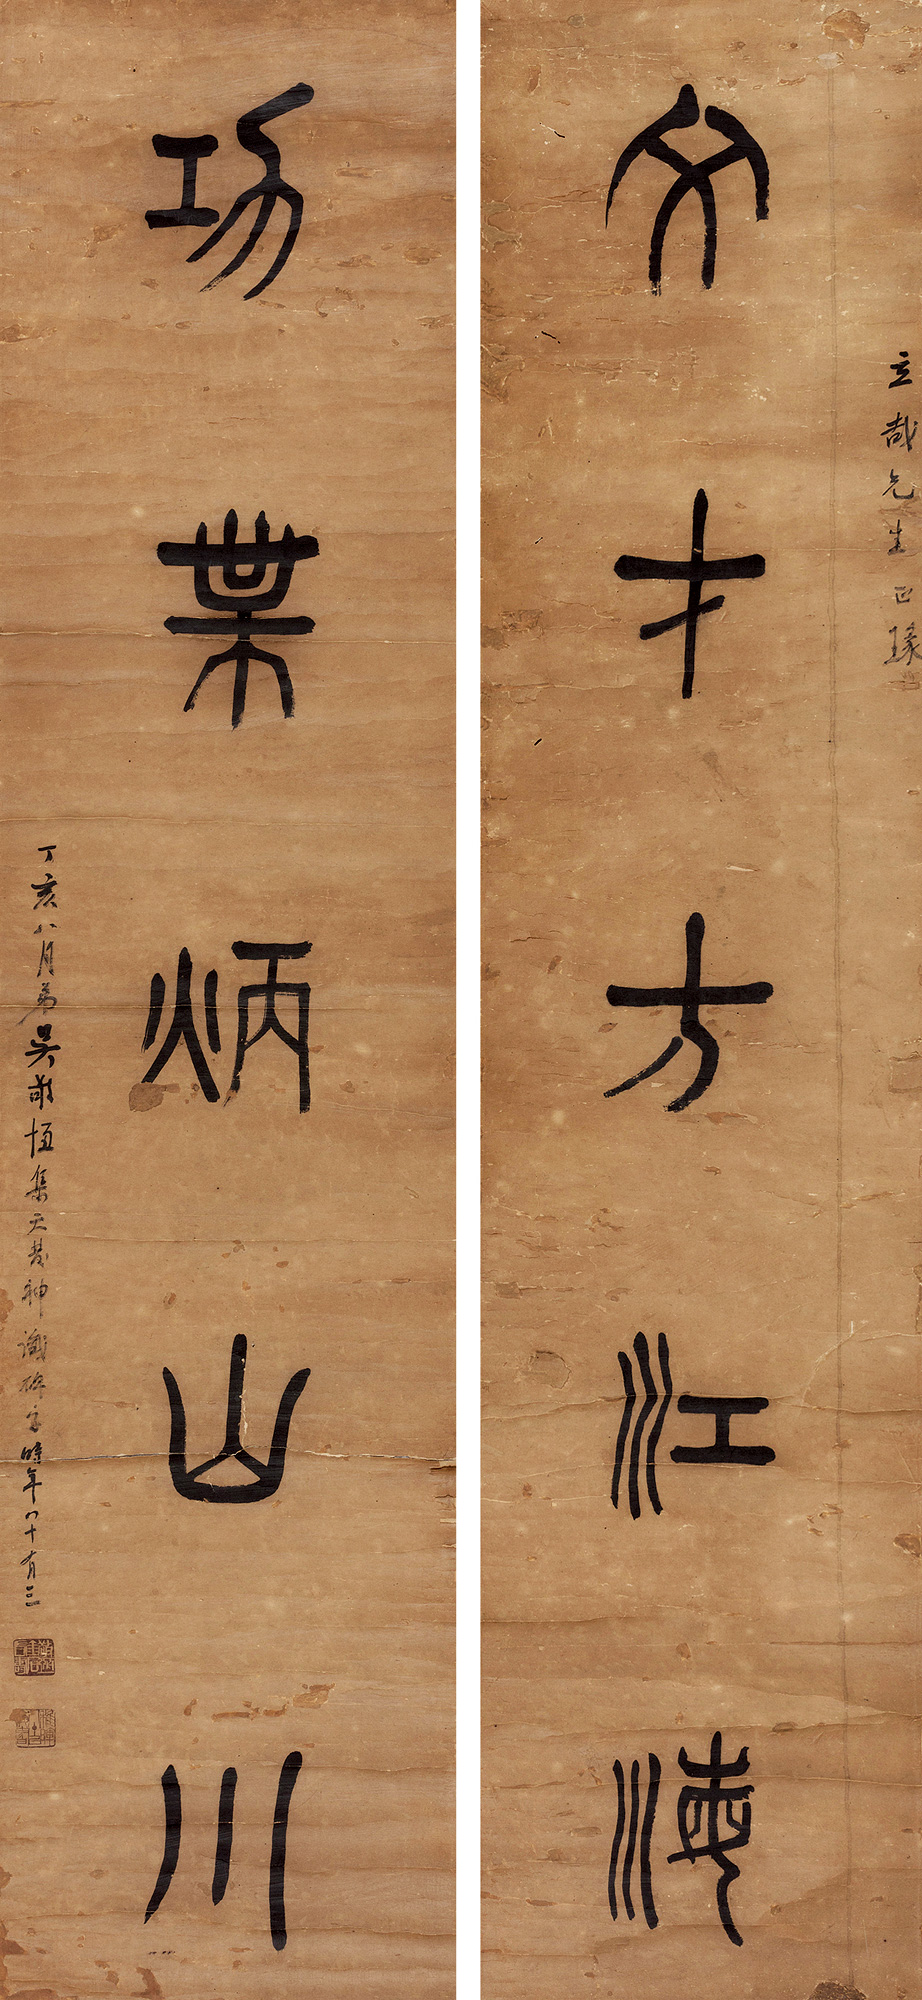 立哉先生正瑑
文才方江海
功業炳山川
丁亥八月弟吳敬恆集天發神讖碑字時年八十有三